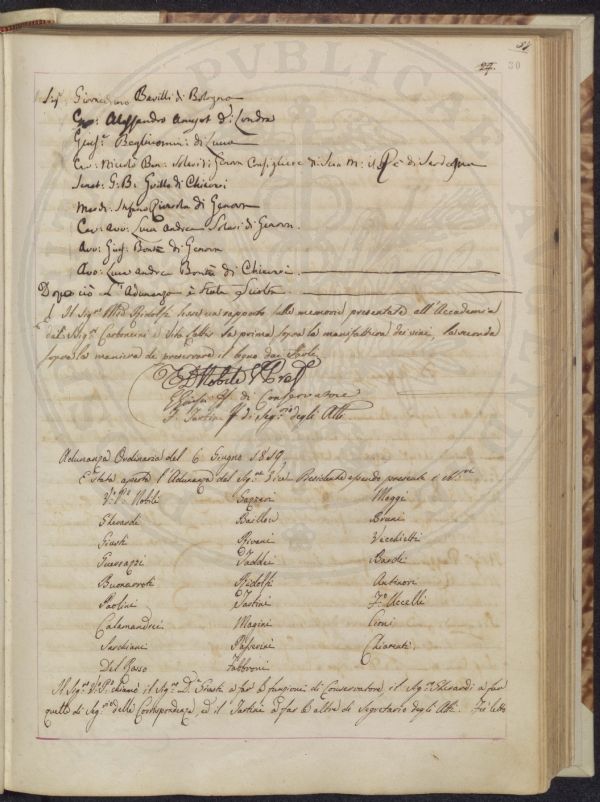 54
24. 30
Sigr. Girolamo Barilli di Bologna
Cav: Alessandro di Londra
Giusepe. di Lucca
Cav: Niccolò Solari di Genova Consigliere di Sua M: il Re di Sardegna
Senat: G: B: di Chiavari
di Genova
Cav: Avv: Luca Andrea Solari di Genova.
Avv: Gius: di Genova
Avv: Luca Andrea di Chiavari.
Dopo ciò L'Adunanza è stata sciolta
Il Sigre. Ridolfi lesse un rapporto sulle memorie presentate all'Accademia
dai Sigri. Carboncini e Vito la prima sopra la manifattura dei vini, la seconda
sopra la maniera di preservare il legno dai Tarli.
Nobili V. Pres
di Conservatore
F. Tartini di Segrio. degli Atti.
Adunanza Ordinaria del 6 Giugno 1819.
È stata aperta l'Adunanza dal Sigre. Vice Presidente essendo presenti i
V.o P.o Nobili Gazzeri Maggi
Gherardi Baillou Bruni
Giusti Rivani Vecchietti
Guerrazzi Taddei Baroli
Buonarroti Ridolfi Antinori
Paolini Tartini Fo. Uccelli
Calamandrei Magini
Sarchiani Passerini Chiarenti
Del Rosso Fabbroni
Il Sigre. Vo. Po. chiamò il Sigre. De. Giusti a far le funzioni di Conservatore, il Sigre. Gherardi a far
quelle di Segrio. delle Corrispondenze, ed il Tartini a far le altre di Segretario degli Atti. Fù letto